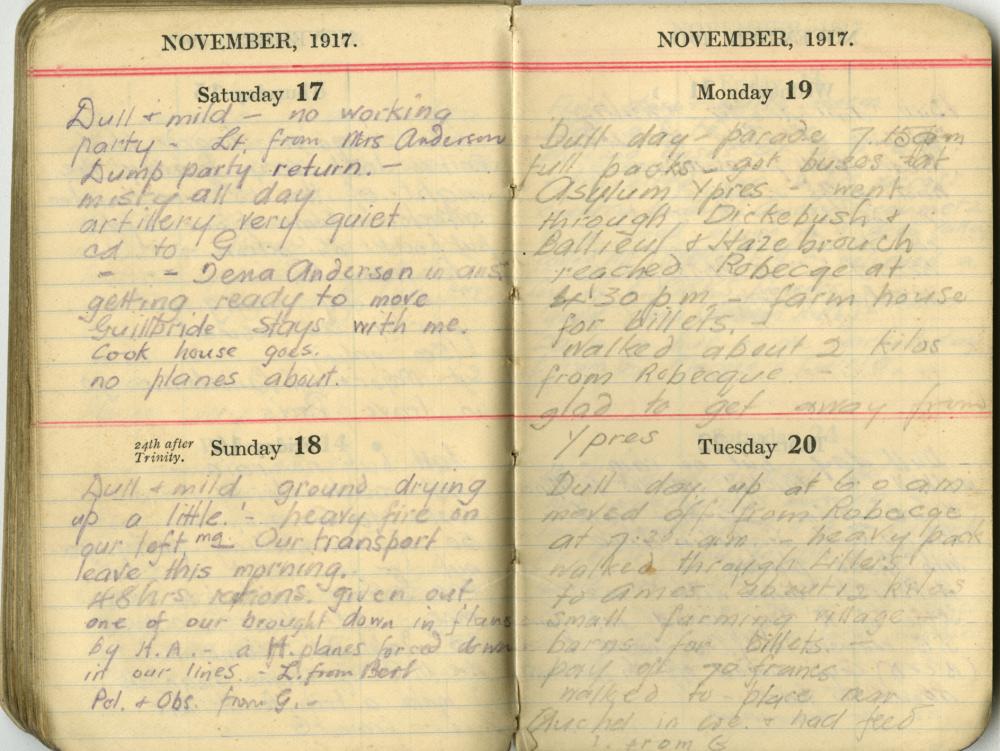 NOVEMBER, 1917.
Saturday 17
Dull + mild – no working
party – Lt. from Mrs Anderson
Dump party return. –
misty all day
artillery very quiet
cd to G
- - Dena Anderson in ans.
getting ready to move
Guillbride stays with me.
Cook house goes.
no planes about.
24th after Trinity. Sunday 18
Dull + mild ground drying
up a little. - heavy fire on
our left mg. Our transport
leave this morning.
48 hrs rations given out
one of our brought down in flames
by H.A. - a H. planes forced down
in our lines. - L. from Bert
Pcl. + Obs. from G. -
NOVEMBER, 1917.
Monday 19
Dull day – parade 7.15 am
full packs – got buses at
Asylum Ypres – went
through Dickebush +
Ballieul + Hazebrouch
reached Robecqe at
4.30 pm – farm house
for billets. –
walked about 2 kilos
from Robecque. –
glad to get away from
Ypres
Tuesday 20
Dull day up at 6.0 am
moved off from Robecqe
at 7.30 am – heavy pack
walked through Lillers
to Ames about 12 kilos
small farming village –
barns for billets. –
pay of 70 francs
walked to place near
in eve. + had feed
L. from G